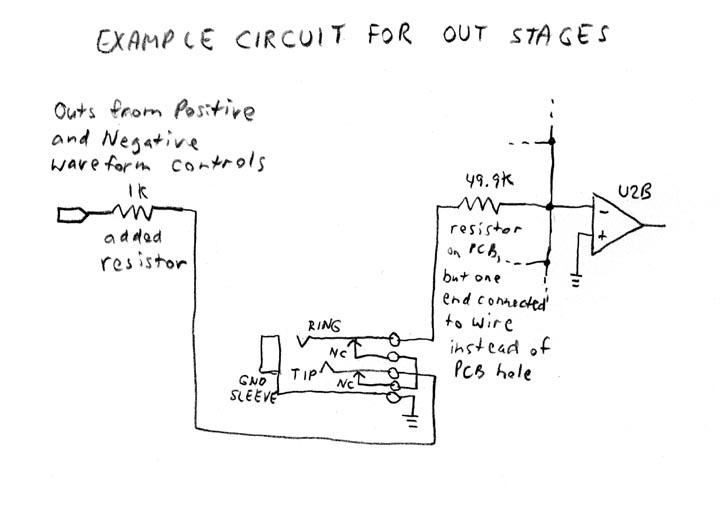 EXAMPLE CIRCUIT FOR OUT STAGES
Outs from Positive
and Negative
waveform controls
1K
added
resistor
49.9K
resistor
on PCB,
but one
end connected
to wire
instead of
PCB hole
U2B
-
+
RING
NC
TIP
NC
GND
SLEEVE